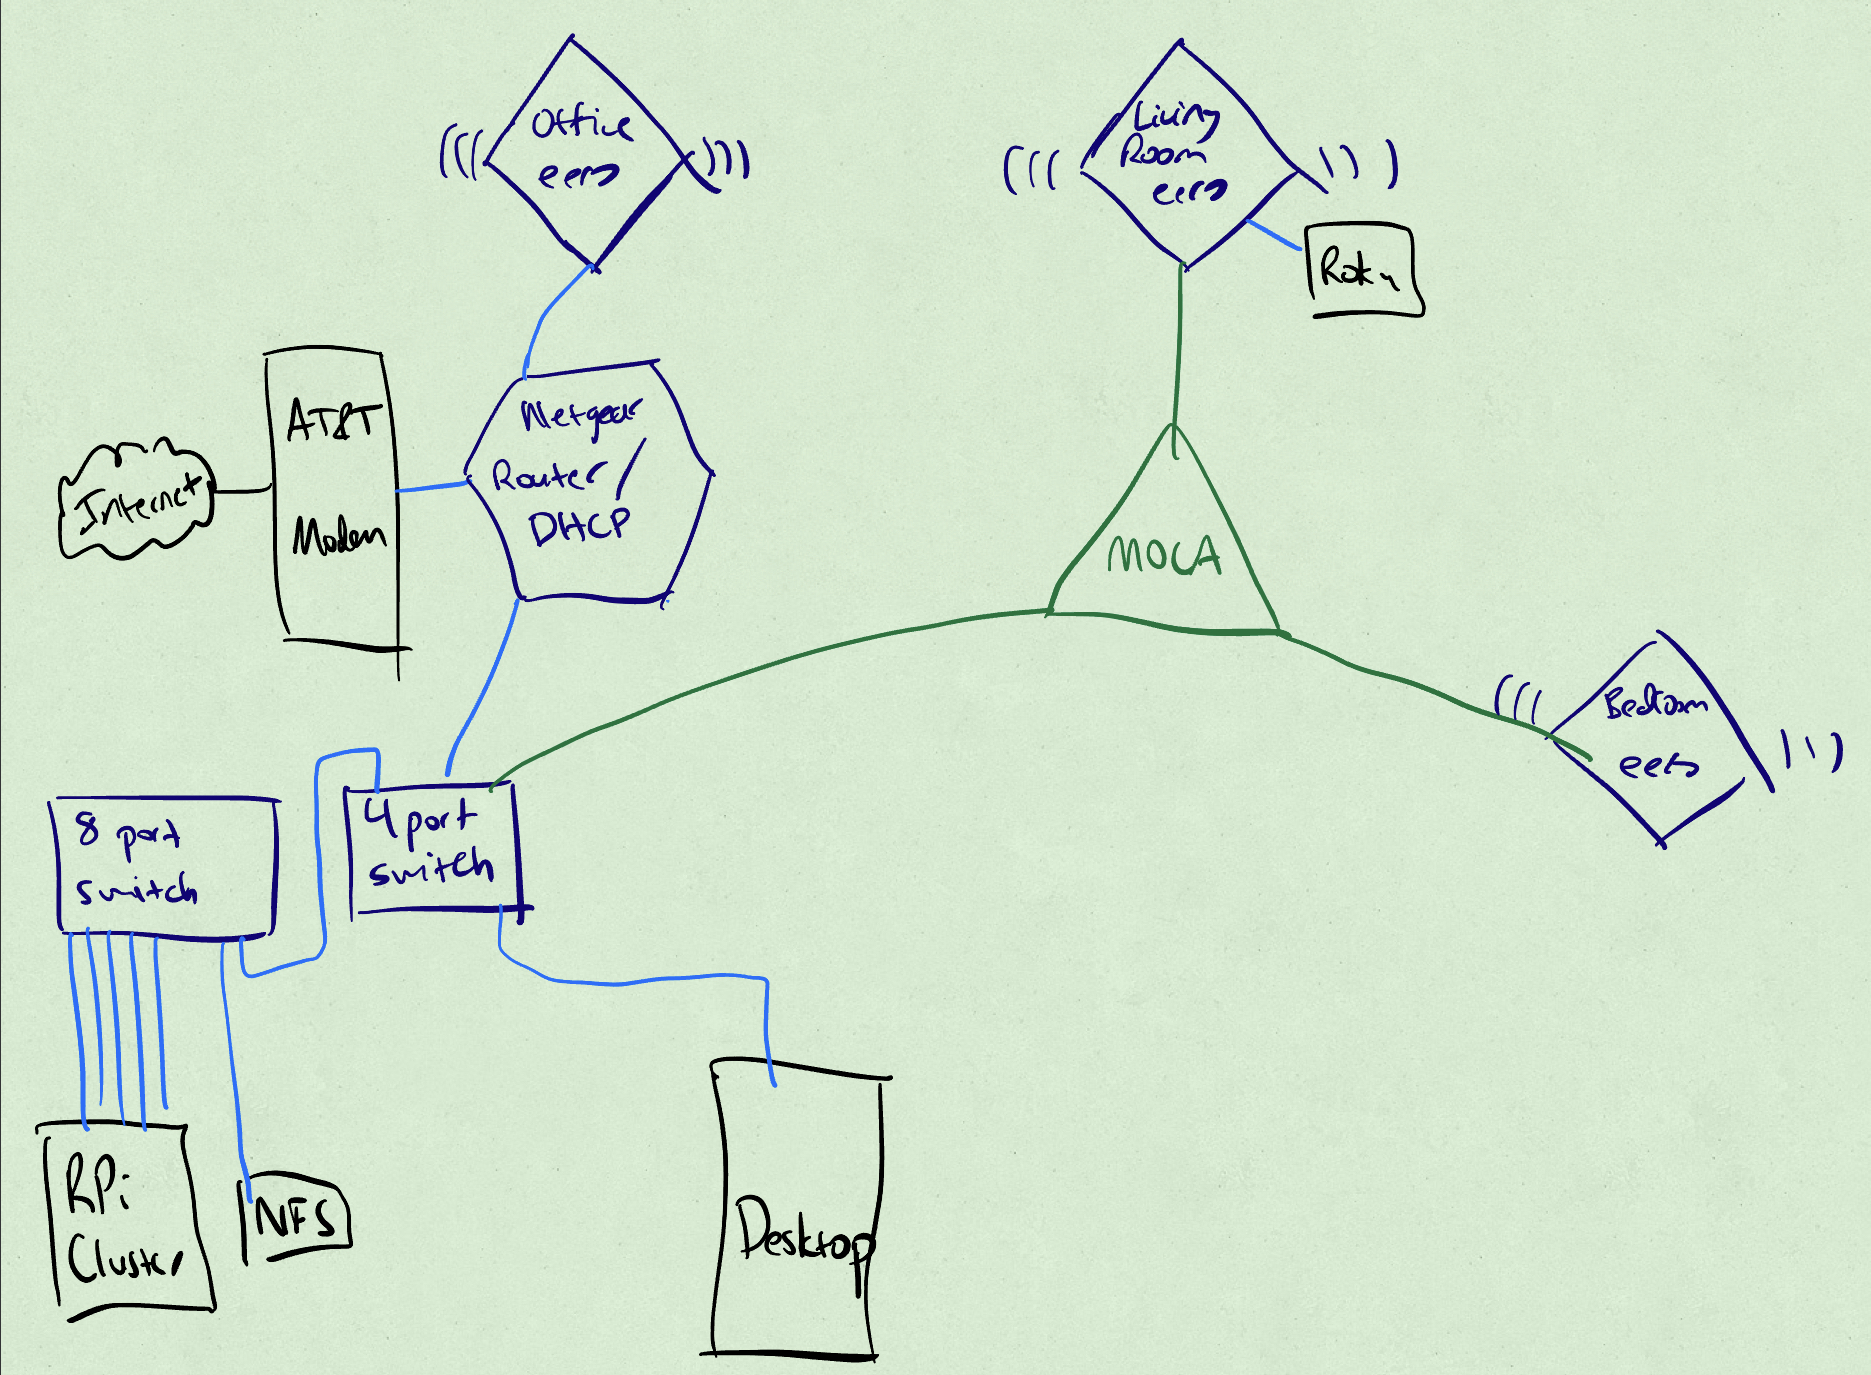 Office
eero
Living
Room
eero
Roku
Internet
AT&T
Modem
Netgear
Router/
DHCP
MOCA
Bedroom
eero
8 port
switch
4 port
switch
RPi
Cluster
NFS
Desktop